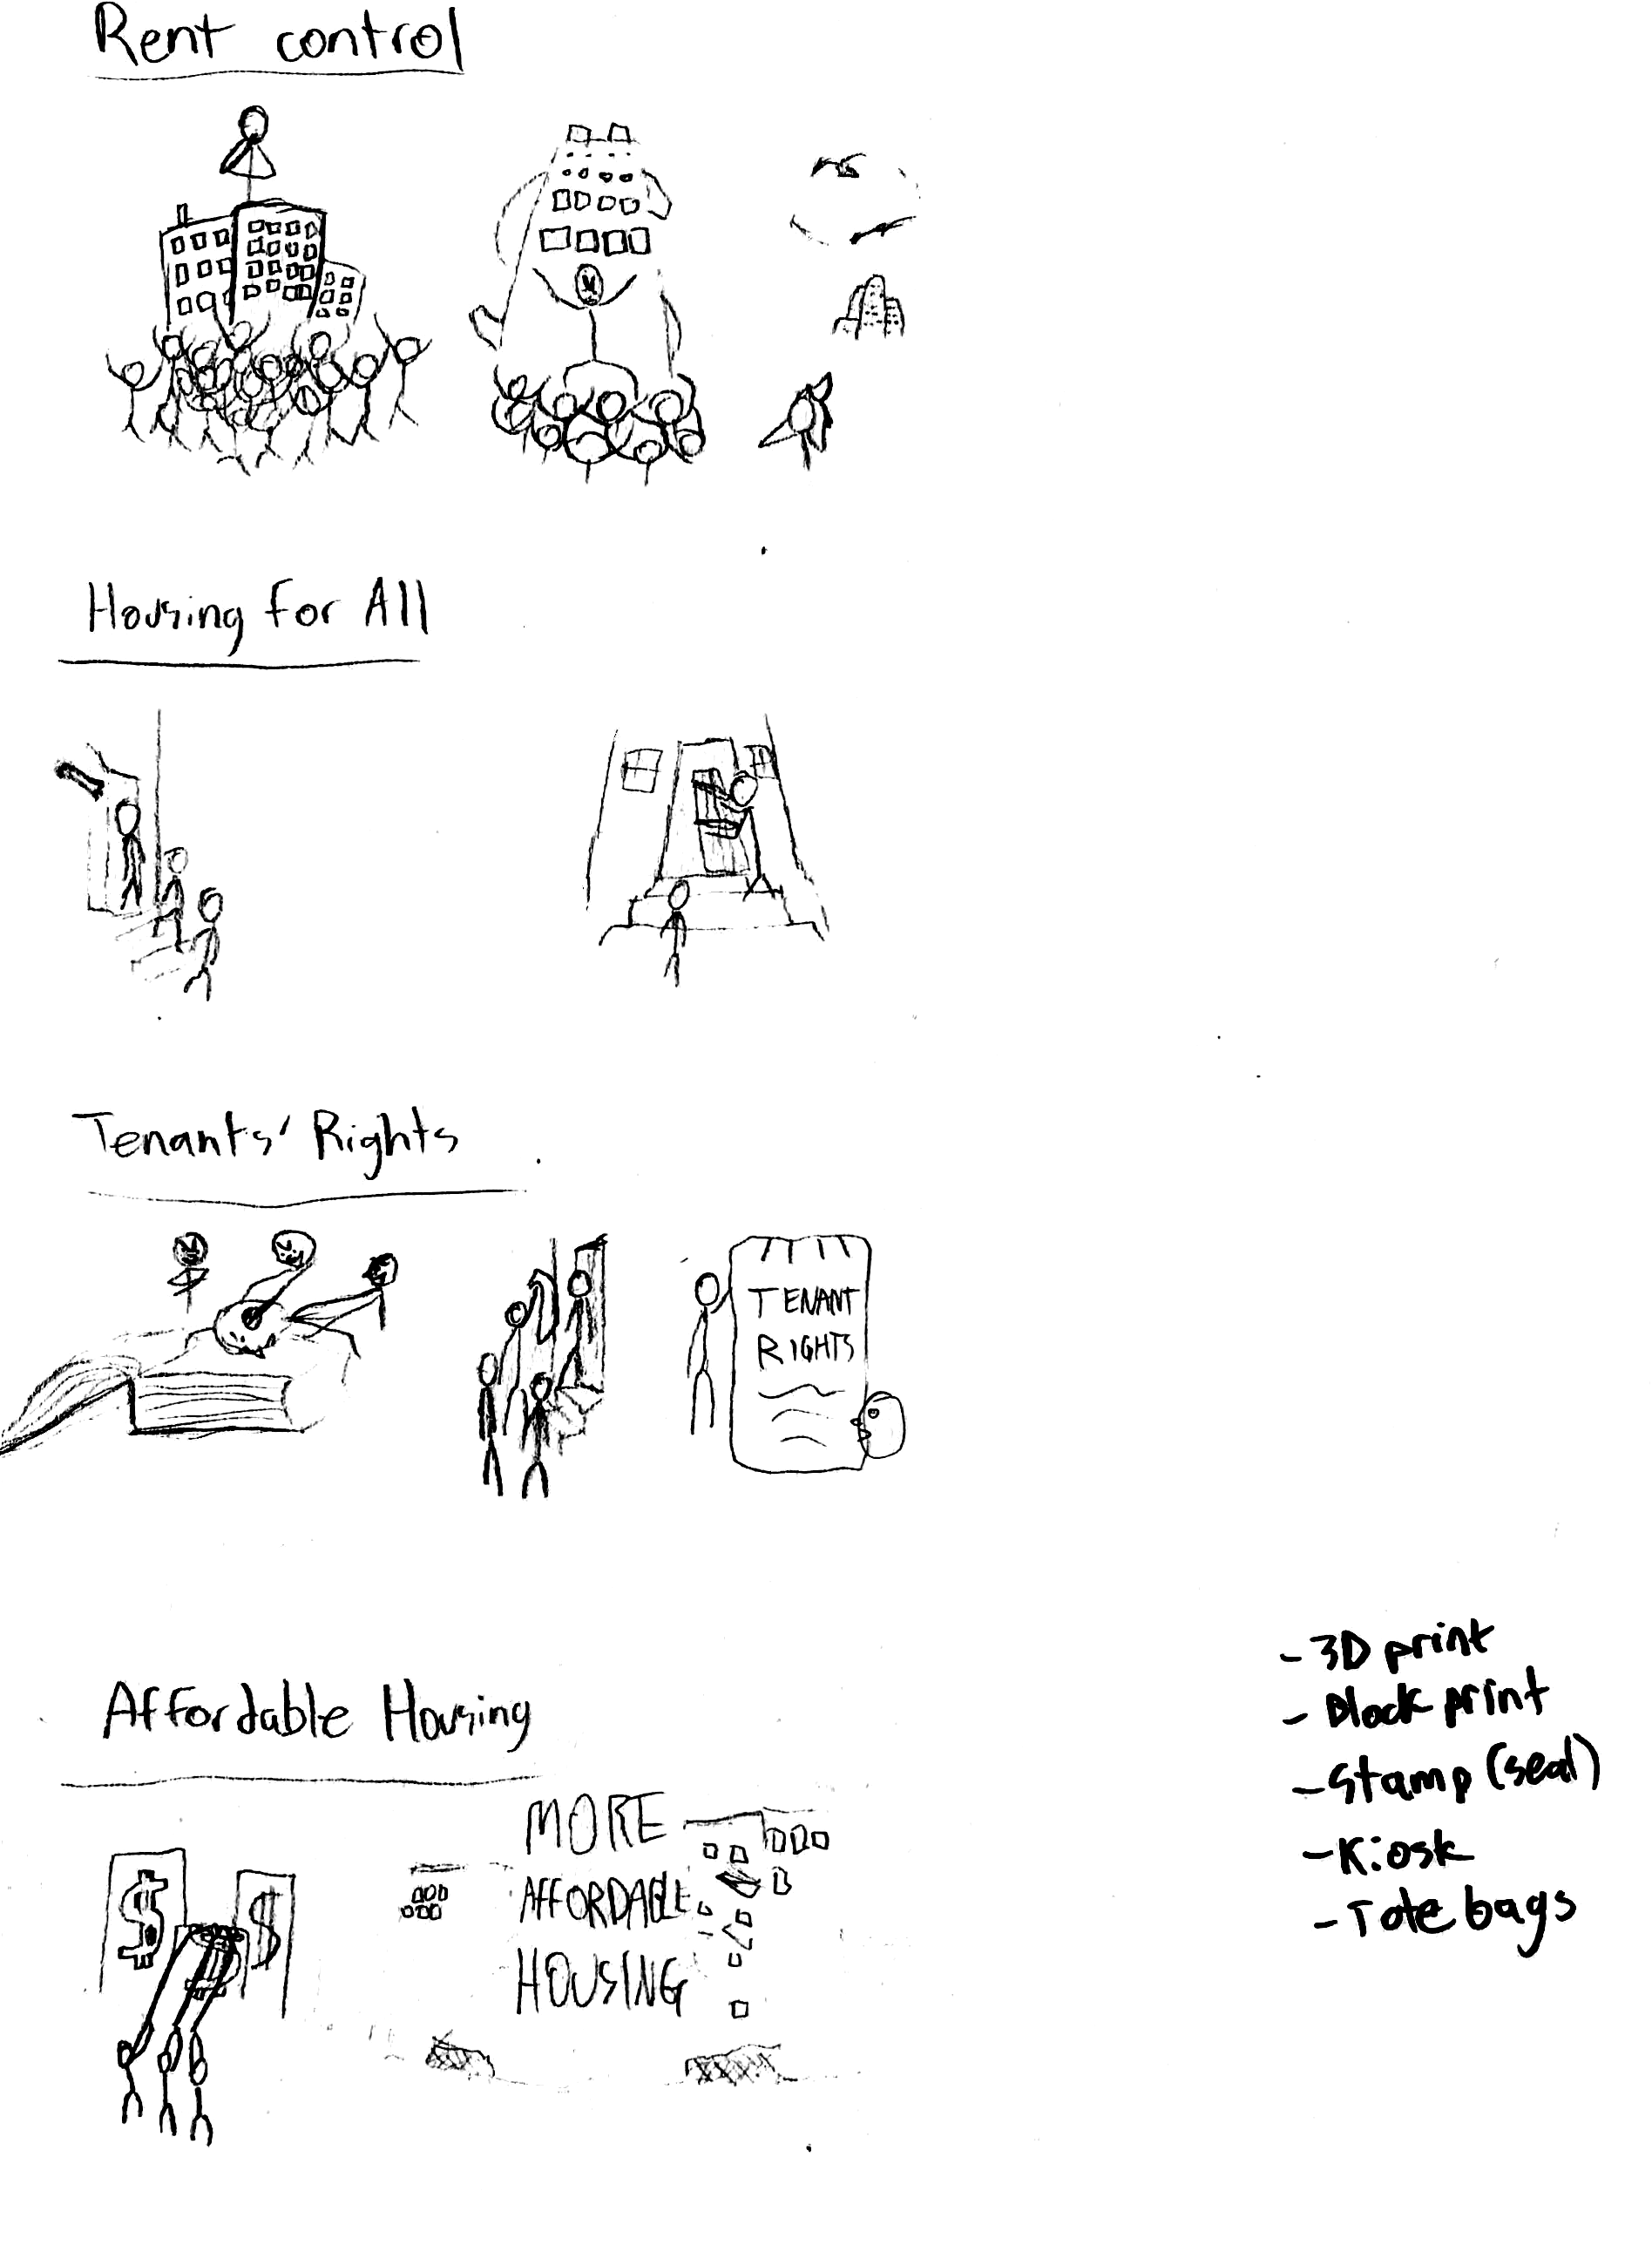 Rent control
Housing for All
Tenants' Rights
TENANT
RIGHTS
Affordable Housing
$ $
MORE
AFFORDABLE
HOUSING
- 3D print
- Block print
- Stamp (seal)
- Kiosk
- Tote bags